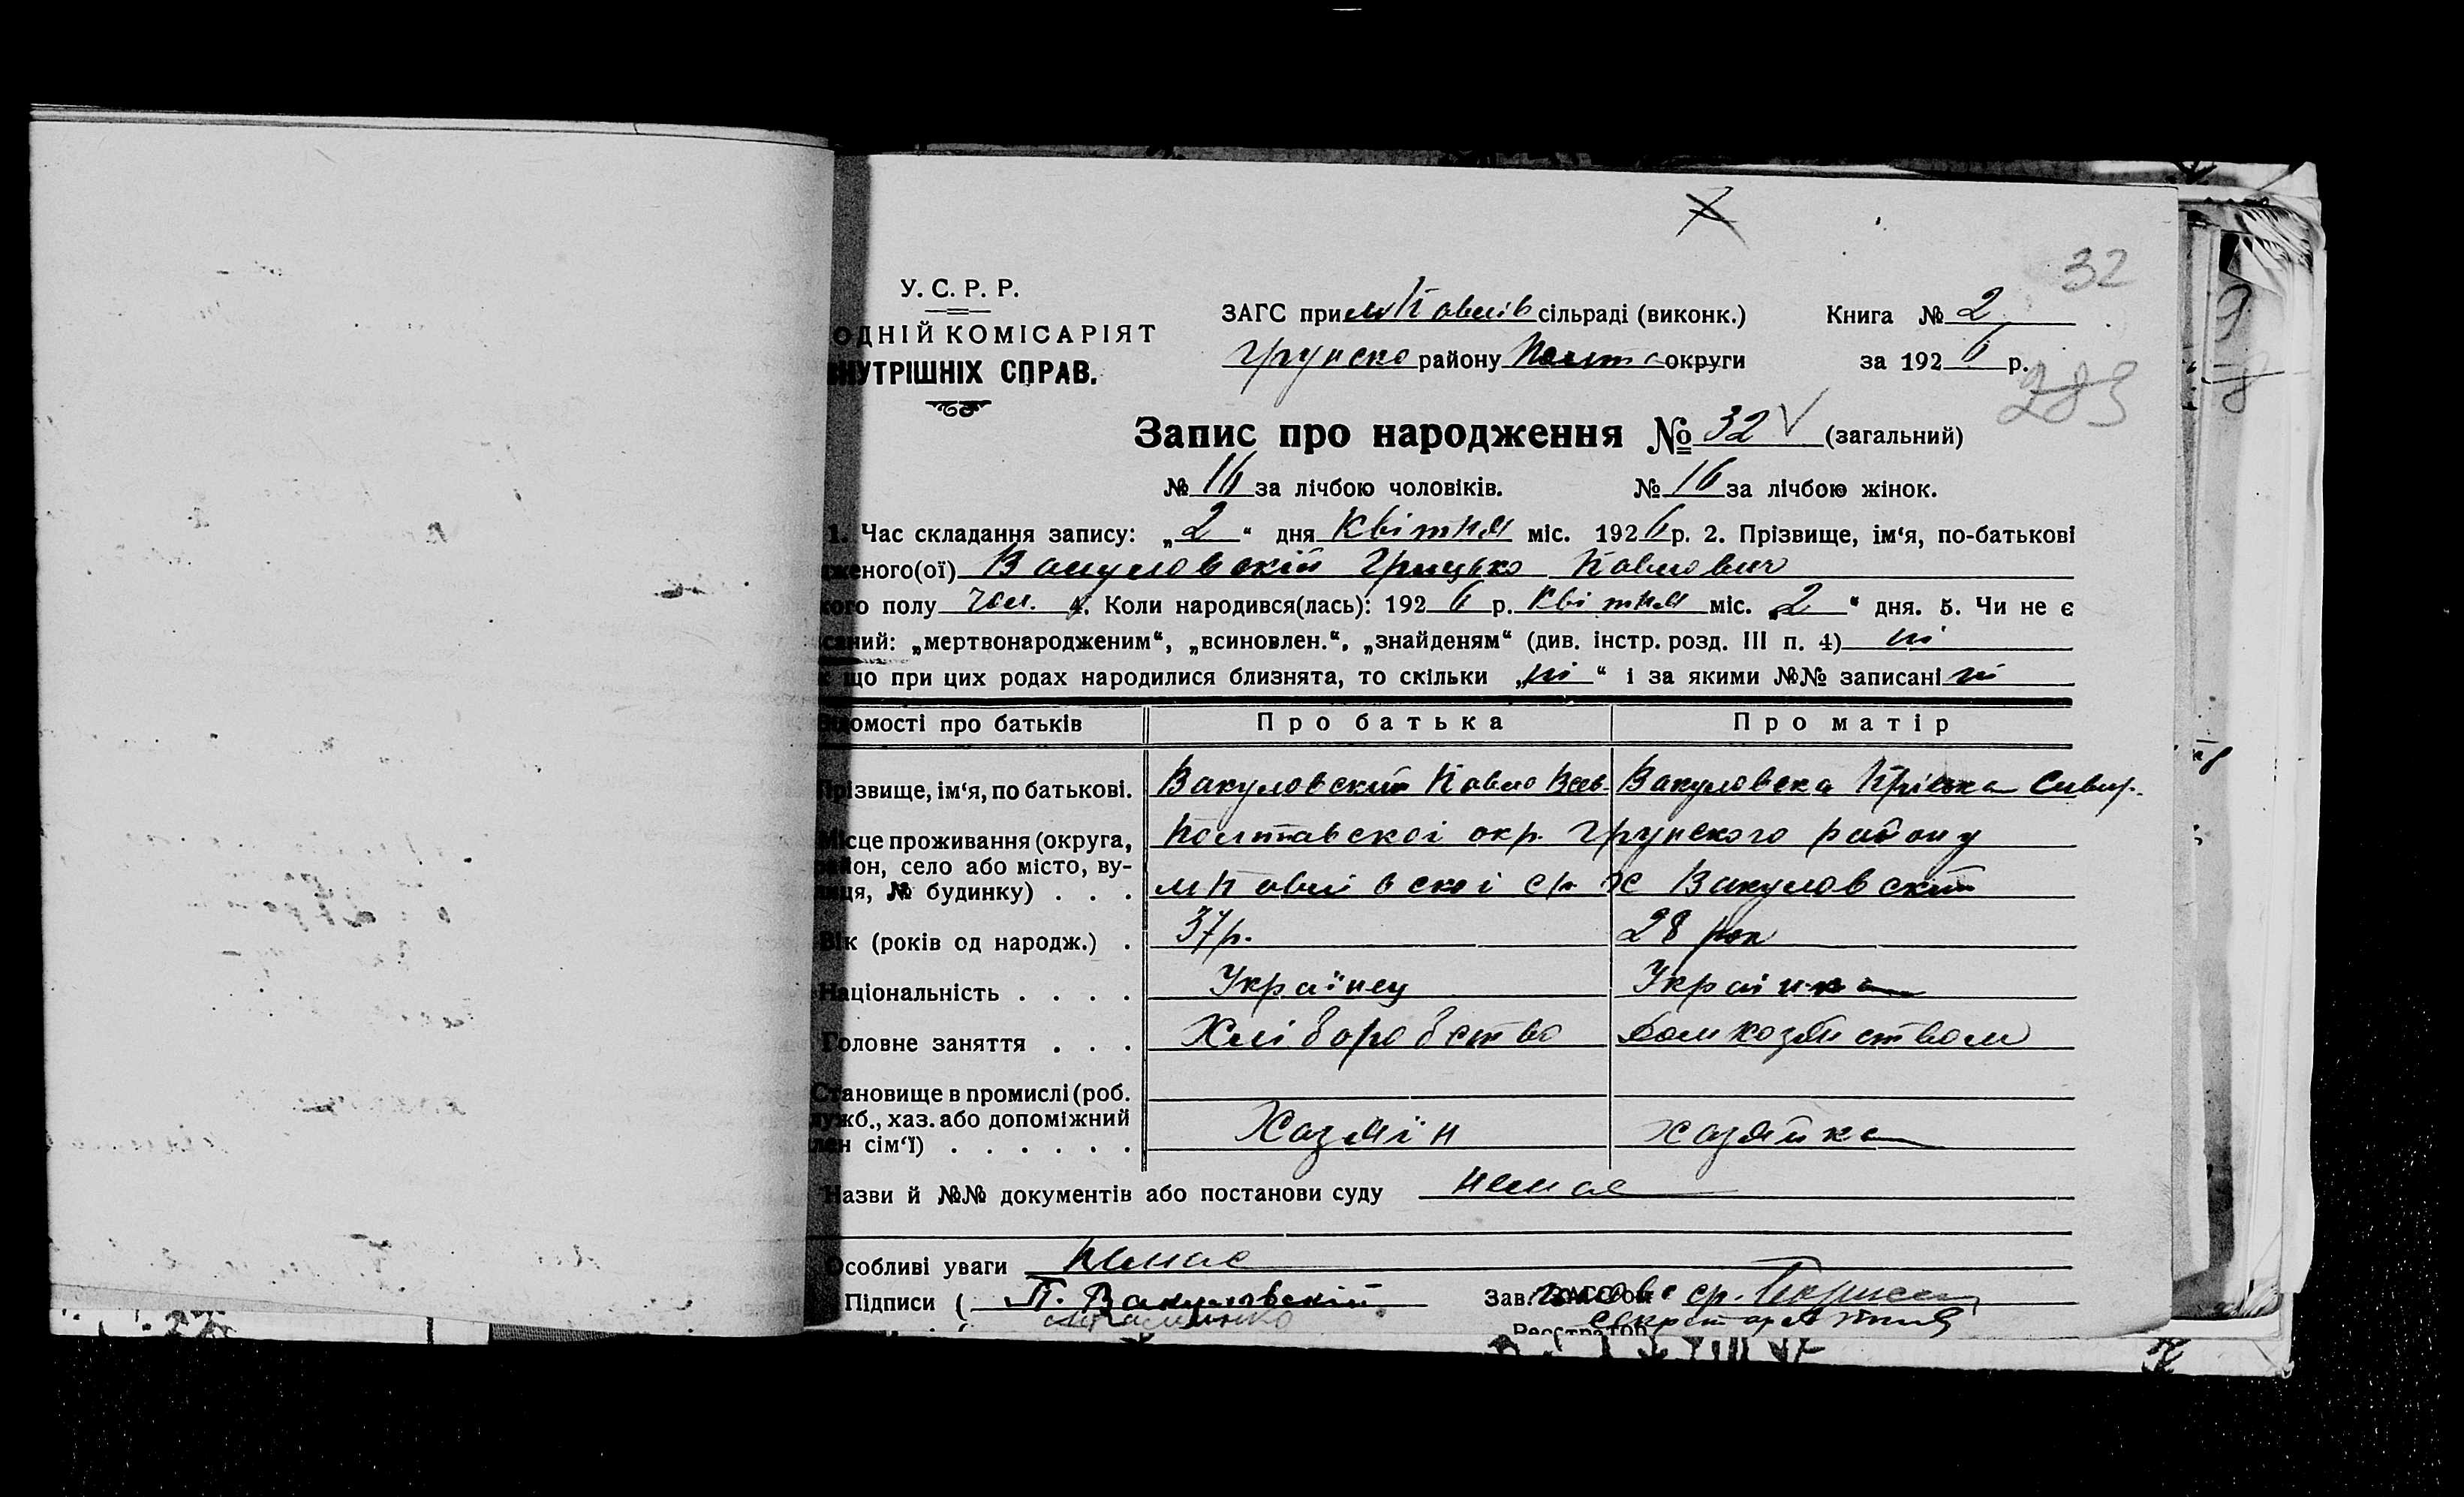 32
У. С. Р. Р.
ОДНІЙ КОМІСАРІЯТ
НУТРІШНІХ СПРАВ.
ЗАГС при мПавлів сільраді (виконк.)
Грунско району Полт округи
Книга № 2
за 1926 р.
283
Запис про народження № 32 (загальний)
№ 16 за лічбою чоловіків. № 16 за лічбою жінок.
1. Час складання запису: „2“ дня Квітня міс. 1926 р. 2. Прізвище, ім‘я, по-батькові
женого(ої) Вакуловскій Грицько Павлович
кого полу чол. 4. Коли народився(лась): 1926 р. Квітня міс. „2“ дня. 5. Чи не є
саний: „мертвонародженим“, „всиновлен.“, „знайденям“ (див. інстр. розд. III п. 4) ні
що при цих родах народилися близнята, то скільки „ні“ і за якими №№ записані ні
ідомості про батьків Про батька Про матір
Прізвище, ім‘я, по батькові. Вакуловский Павло Вакуловска
Місце проживання (округа, Полтавскоі окр. Грунского району
район, село або місто, ву-
лиця, № будинку) . . . мПавлівскоі ср. х Вакуловский
Вік (років од народж.) . 37 р. 28 рок
Національність . . . . Українец Украінка
Головне заняття . . . Хліборобство Домхозяйством
Становище в промислі (роб.
служб., хаз. або допоміжний
член сім‘ї) . . . . . . Хазяін хазяйка
Назви й №№ документів або постанови суду немае
Особливі уваги немае
Підписи ( П. Вакуловский Зав. ЗАГС‘ом ср.
Реєстратор секретар